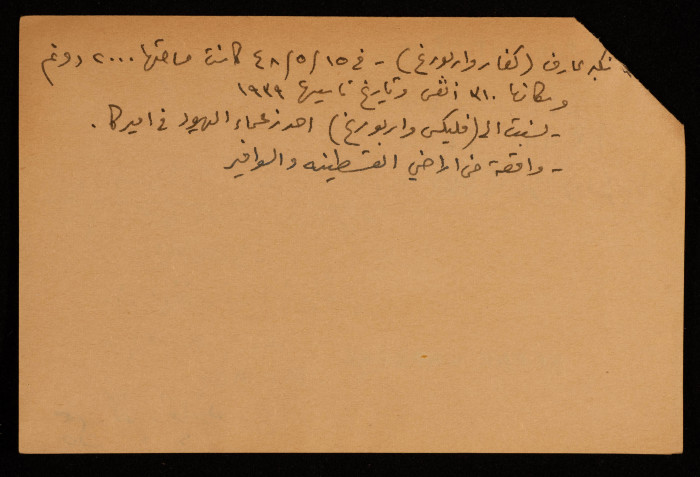 نكبة عارف (كفار واربورغ) - في ١٥/٥/٤٨ كانت مساحتها ٢٠٠٠ دونم
وسكانها ٣١٠ أنفس وتاريخ تأسيسها ١٩٣٩
- نسبت الى (فليكس واربورغ) احد زعماء اليهود في اميركا .
- واقعة من اراضي القسطينه والسوافير